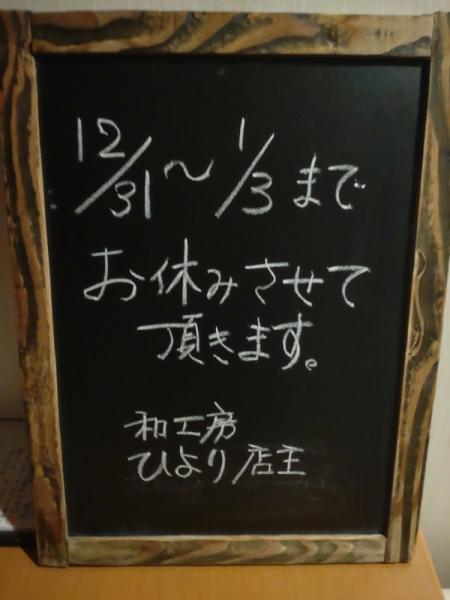 12/31～1/3まで
お休みさせて
頂きます。
和工房
ひより店主